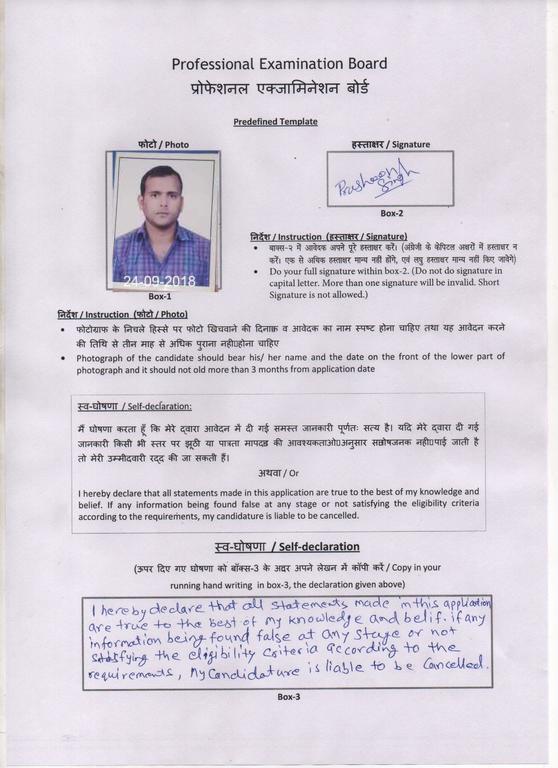 Professional Examination Board
प्रोफेशनल एक्जामिनेशन बोर्ड
Predefined Template
फोटो / Photo
हस्ताक्षर / Signature
24-09-2018
Box-1
Prashant
Singh
Box-2
निर्देश / Instruction (हस्ताक्षर / Signature)
• बाक्स-२ में आवेदक अपने पूरे हस्ताक्षर करें। (अंग्रेजी के केपिटल अक्षरों में हस्ताक्षर न
करें। एक से अधिक हस्ताक्षर मान्य नहीं होंगे, एवं लघु हस्ताक्षर मान्य नहीं किए जावेंगे)
• Do your full signature within box-2. (Do not do signature in
capital letter. More than one signature will be invalid. Short
Signature is not allowed.)
निर्देश / Instruction (फोटो / Photo)
• फोटोग्राफ के निचले हिस्से पर फोटो खिचवाने की दिनाक व आवेदक का नाम स्पष्ट होना चाहिए तथा यह आवेदन करने
की तिथि से तीन माह से अधिक पुराना नही होना चाहिए
• Photograph of the candidate should bear his/ her name and the date on the front of the lower part of
photograph and it should not old more than 3 months from application date
स्व-घोषणा / Self-declaration:
मैं घोषणा करता हूँ कि मेरे द्वारा आवेदन में दी गई समस्त जानकारी पूर्णतः सत्य है। यदि मेरे द्वारा दी गई
जानकारी किसी भी स्तर पर झूठी या पात्रता मापदड की आवश्यकताओ अनुसार सतोषजनक नही पाई जाती है
तो मेरी उम्मीदवारी रदद की जा सकती हैं।
अथवा / Or
I hereby declare that all statements made in this application are true to the best of my knowledge and
belief. If any information being found false at any stage or not satisfying the eligibility criteria
according to the requirements, my candidature is liable to be cancelled.
स्व-घोषणा / Self-declaration
(ऊपर दिए गए घोषणा को बॉक्स-3 के अदर अपने लेखन में कॉपी करें / Copy in your
running hand writing in box-3, the declaration given above)
I hereby declare that all statements made in this application
are true to the best of my knowledge and belif. if any
information being found false at any stage or not
satisfying the eligibility criteria according to the
requirements, my candidature is liable to be cancelled.
Box-3